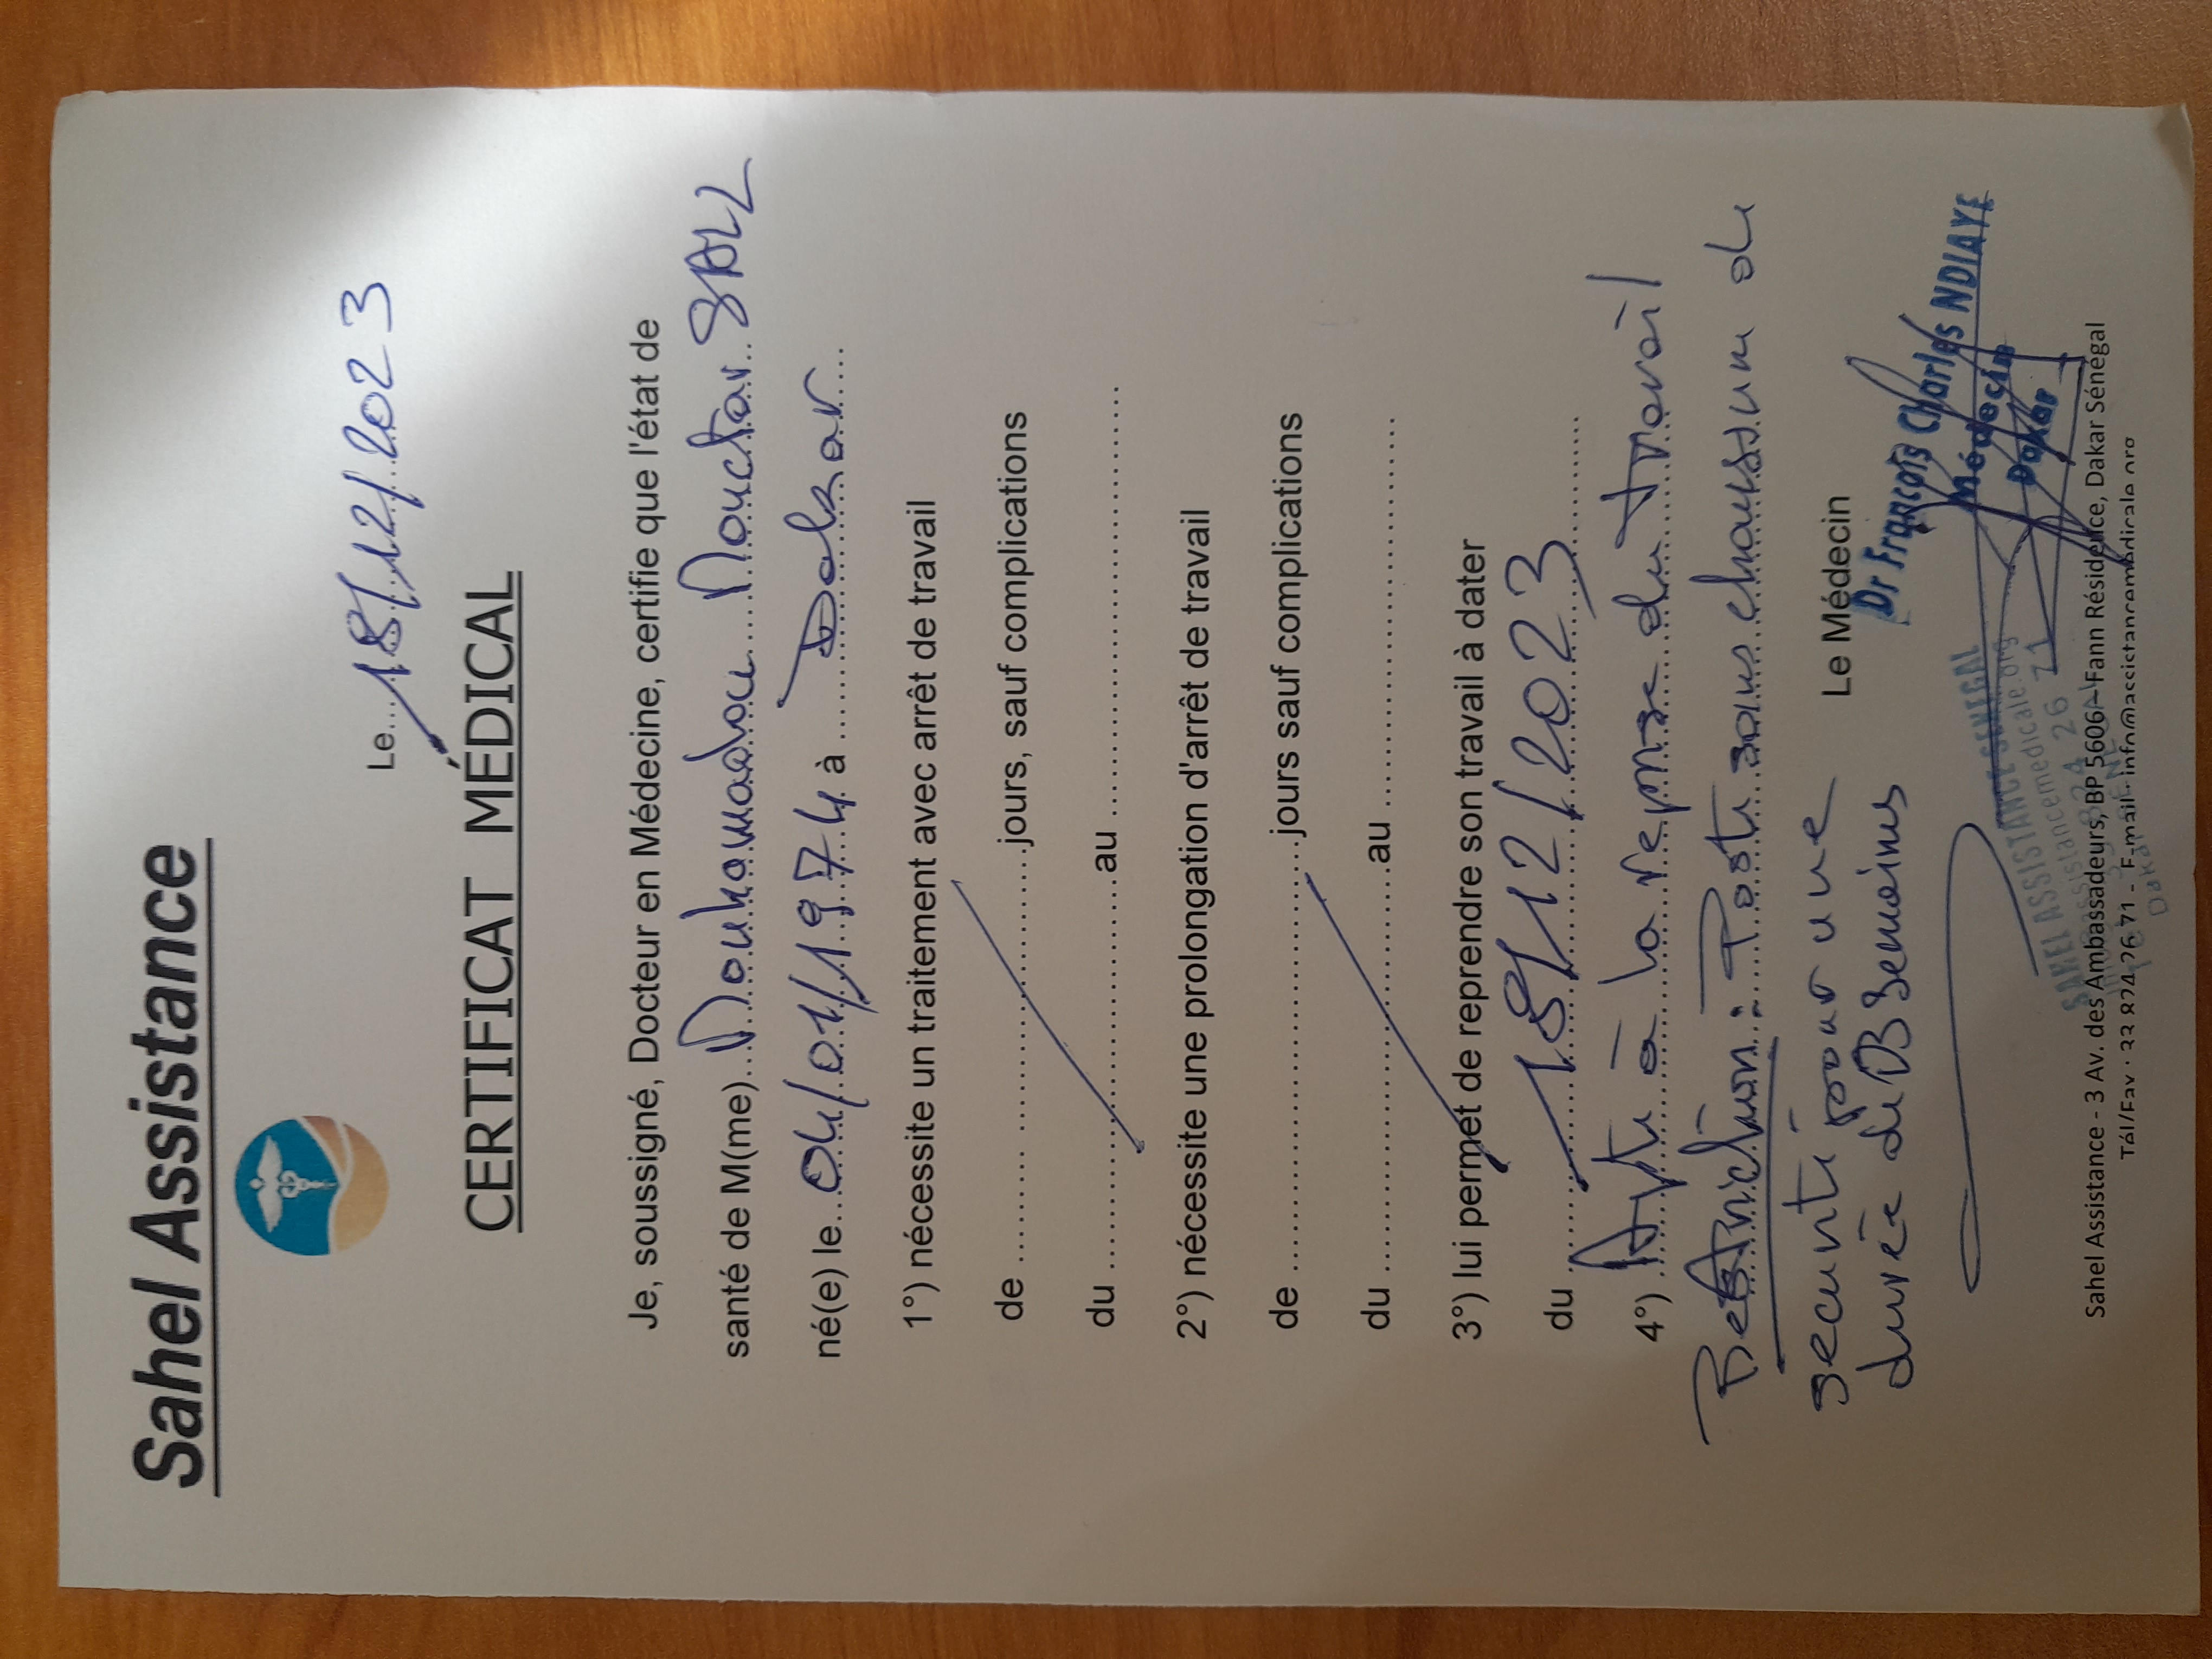 Sahel Assistance
Le...18/12/2023
CERTIFICAT MÉDICAL
Je, soussigné, Docteur en Médecine, certifie que l'état de
santé de M(me)...Mouhamadou Mouctar SALL
né(e) le...04/01/1974 à Dakar
1°) nécessite un traitement avec arrêt de travail
de ........................ jours, sauf complications
du ........................ au ........................
2°) nécessite une prolongation d'arrêt de travail
de ........................ jours sauf complications
du ........................ au ........................
3°) lui permet de reprendre son travail à dater
du ...18/12/2023
4°) Apte à la reprise du travail
Restriction : Poste sans chaussure de
securité pour une
durée de 03 Semaines
Le Médecin
Dr François Charles NDIAYE
Médecin
Dakar
SAHEL ASSISTANCE SENEGAL
Sahel Assistance - 3 Av. des Ambassadeurs, BP 5606 - Fann Résidence, Dakar Sénégal
Tél/Fax : 33 824 26 71 - E-mail : info@assistancemedicale.org